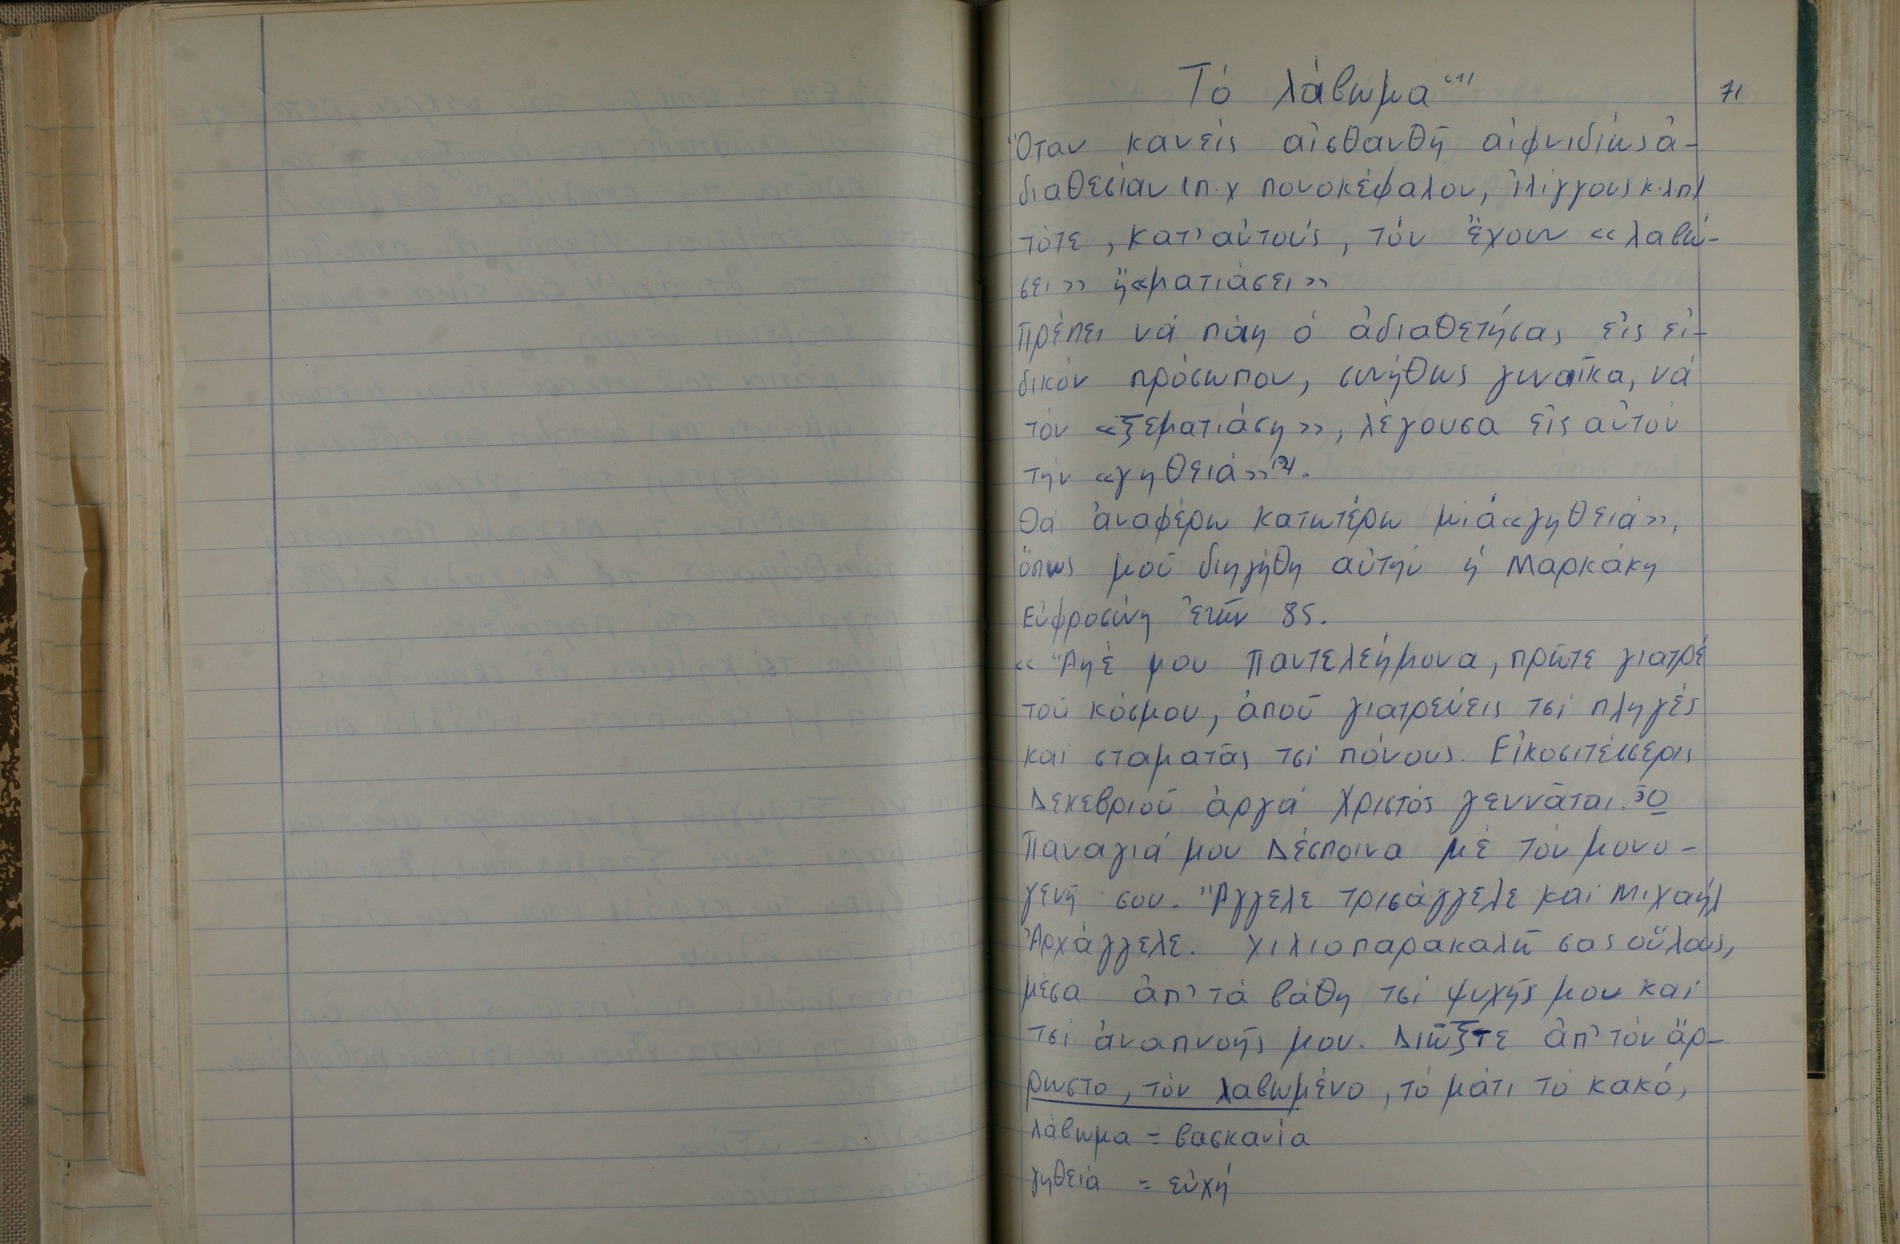 Τό λάβωμα (1)
71
Ὅταν κανείς αἰσθανθῆ αἰφνιδίως ἀ-
διαθεσίαν (π.χ πονοκέφαλον, ἰλίγγους κ.λπ)
τότε, κατ' αὐτούς, τόν ἔχουν «λαβώ-
σει» ἤ «ματιάσει»
Πρέπει νά πάη ὁ ἀδιαθετήσας εἰς εἰ-
δικόν πρόσωπον, συνήθως γυναῖκα, νά
τόν «ξεματιάση», λέγουσα εἰς αὐτόν
τήν «γηθειά» (2).
Θά ἀναφέρω κατωτέρω μιά «γηθειά»,
ὅπως μοῦ διηγήθη αὐτήν ἡ Μαρκάκη
Εὐφροσύνη ἐτῶν 85.
« Ἅηέ μου Παντελεήμονα, πρῶτε γιατρέ
τοῦ κόσμου, ἀποῦ γιατρεύεις τσί πληγές
καί σταματᾶς τσί πόνους. Εἰκοσιτέσσερις
Δεκεβριοῦ ἀργά Χριστός γεννᾶται. Ὦ
Παναγιά μου Δέσποινα μέ τόν μονο-
γενῆ σου. Ἄγγελε τρισάγγελε καί Μιχαήλ
Ἀρχάγγελε. χιλιοπαρακαλῶ σας οὕλους,
μέσα ἀπ' τά βάθη τσί ψυχῆς μου καί
τσί ἀναπνοῆς μου. Διῶξτε ἀπ' τόν ἄρ-
ρωστο, τόν λαβωμένο, τό μάτι τό κακό,
λάβωμα = βασκανία
γηθειά = εὐχή